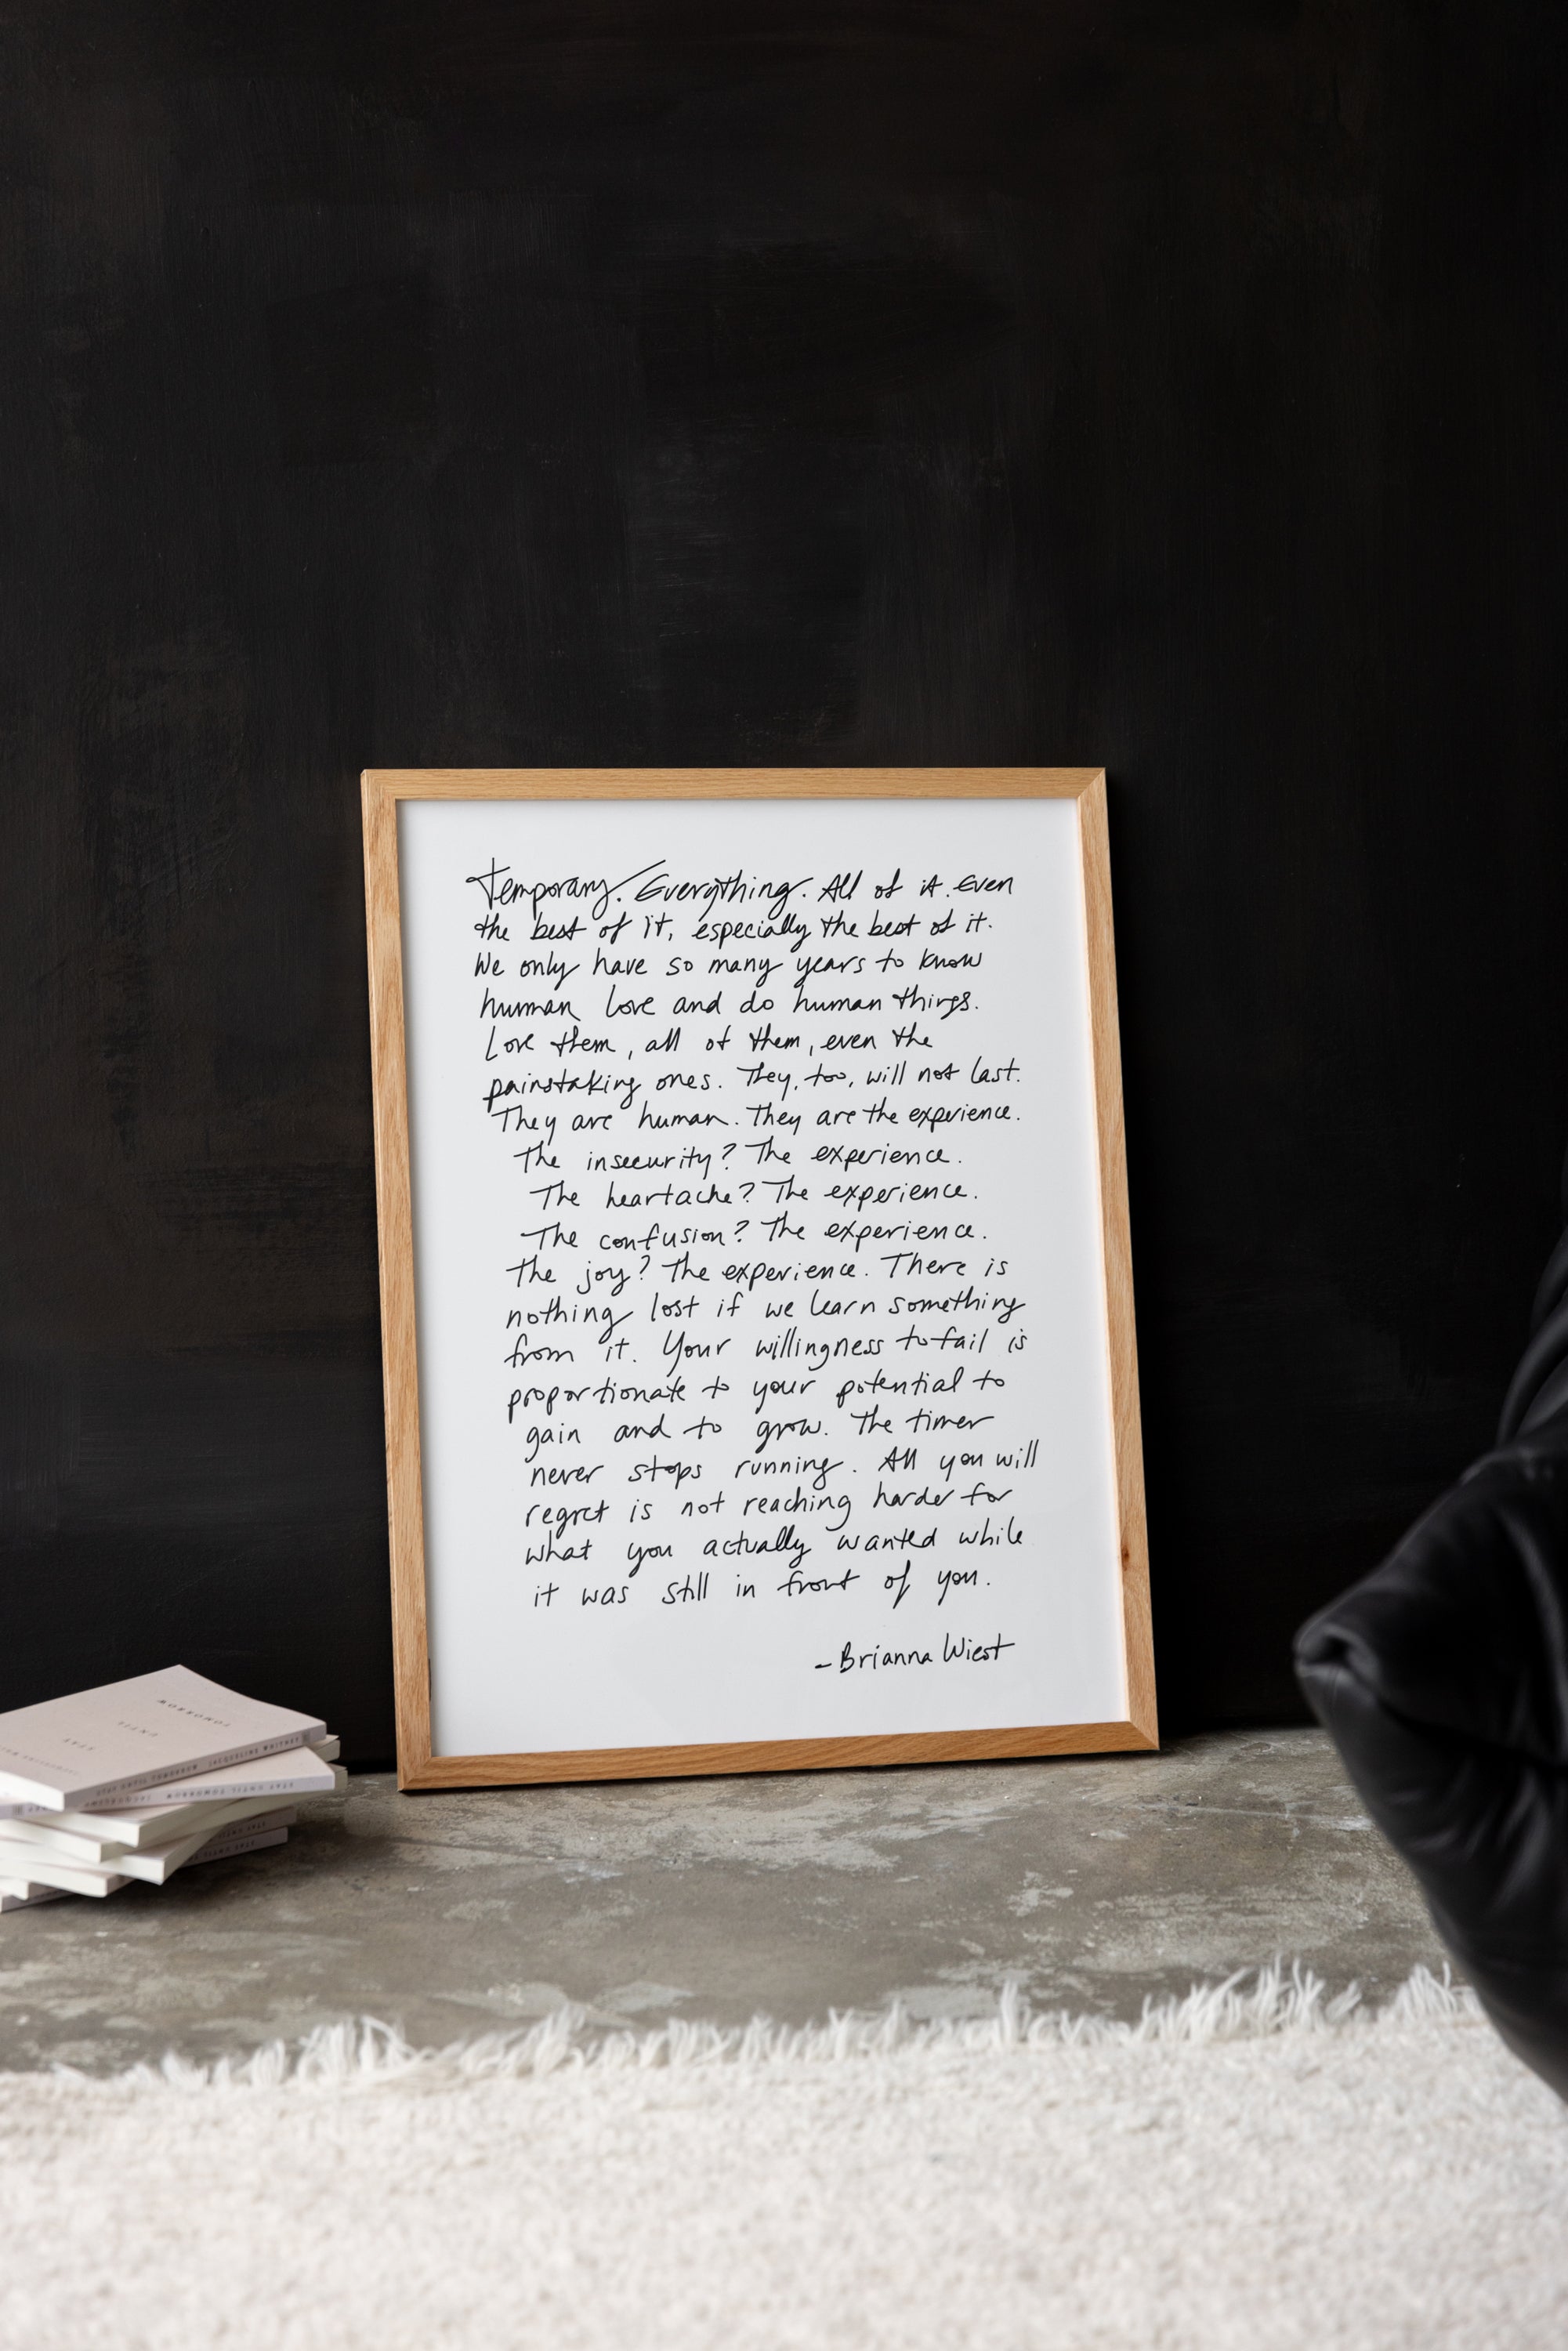 Temporary. Everything. All of it. Even
the best of it, especially the best of it.
We only have so many years to know
human love and do human things.
Love them, all of them, even the
painstaking ones. They, too, will not last.
They are human. They are the experience.
The insecurity? The experience.
The heartache? The experience.
The confusion? The experience.
The joy? The experience. There is
nothing lost if we learn something
from it. Your willingness to fail is
proportionate to your potential to
gain and to grow. The timer
never stops running. All you will
regret is not reaching harder for
what you actually wanted while
it was still in front of you.
-Brianna Wiest
STAY
UNTIL
TOMORROW
STAY UNTIL TOMORROW
STAY UNTIL TOMORROW